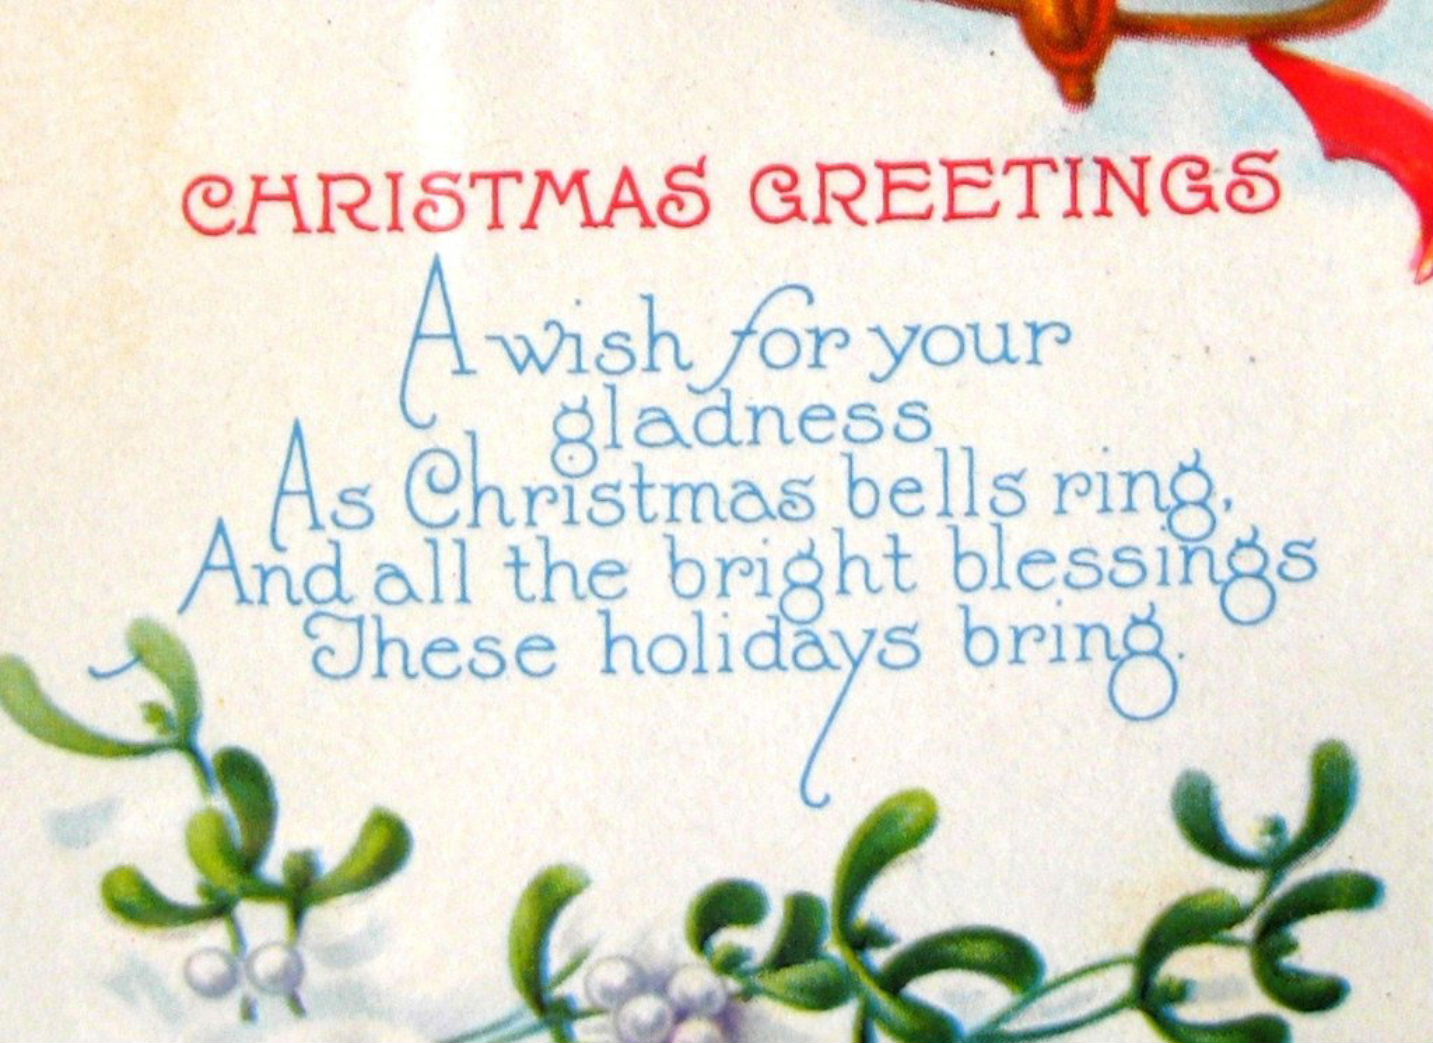 CHRISTMAS GREETINGS
A wish for your
gladness
As Christmas bells ring,
And all the bright blessings
These holidays bring.